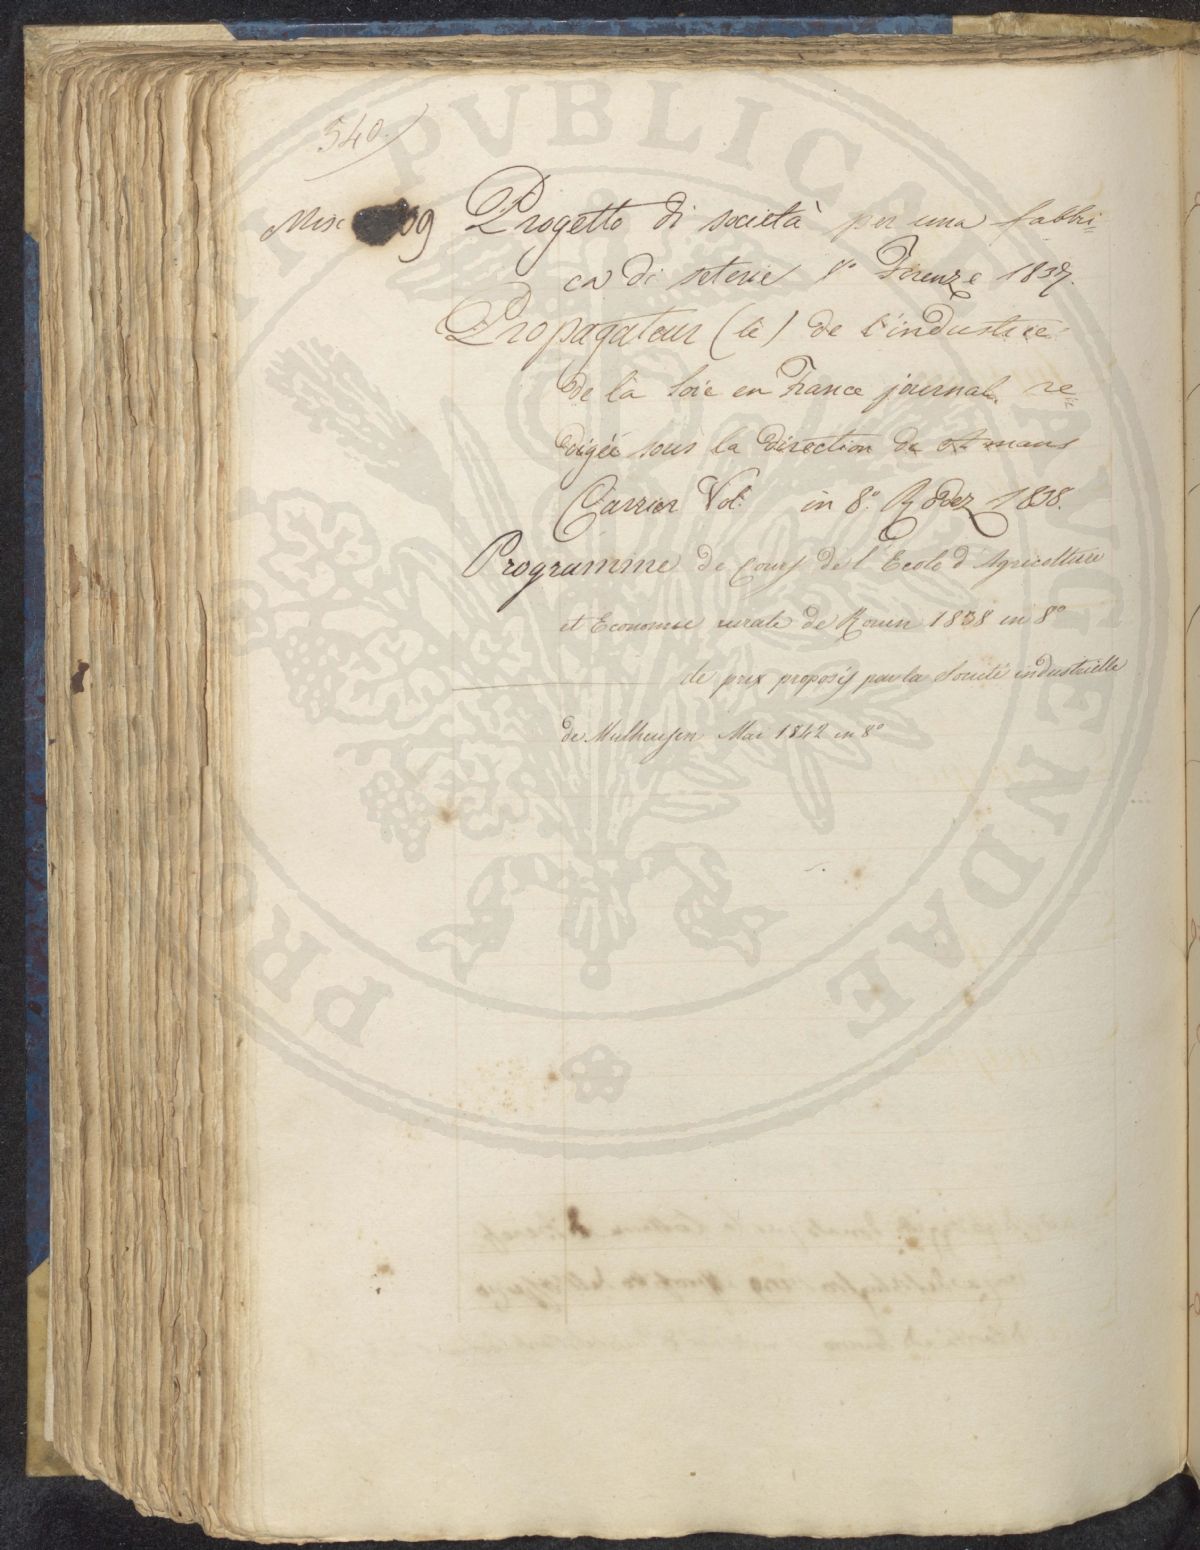 540.
Misc 09 Progetto di società per una fabbri=
ca di seterie 8° Firenze 1837.
Propagateur (le) de l'industrie
de la soie en France journal re
digée sous la direction de Amans
Carrier Vol. in 8.° Rodez 1838.
Programme de Cours de l'Ecole d'Agricolture
et Economie rurale de Rouen 1838 in 8°
de prix proposés par la Société industrielle
de Mulheusen Mai 1842 in 8°
PUBLICAE
AUGENDAE
PRO